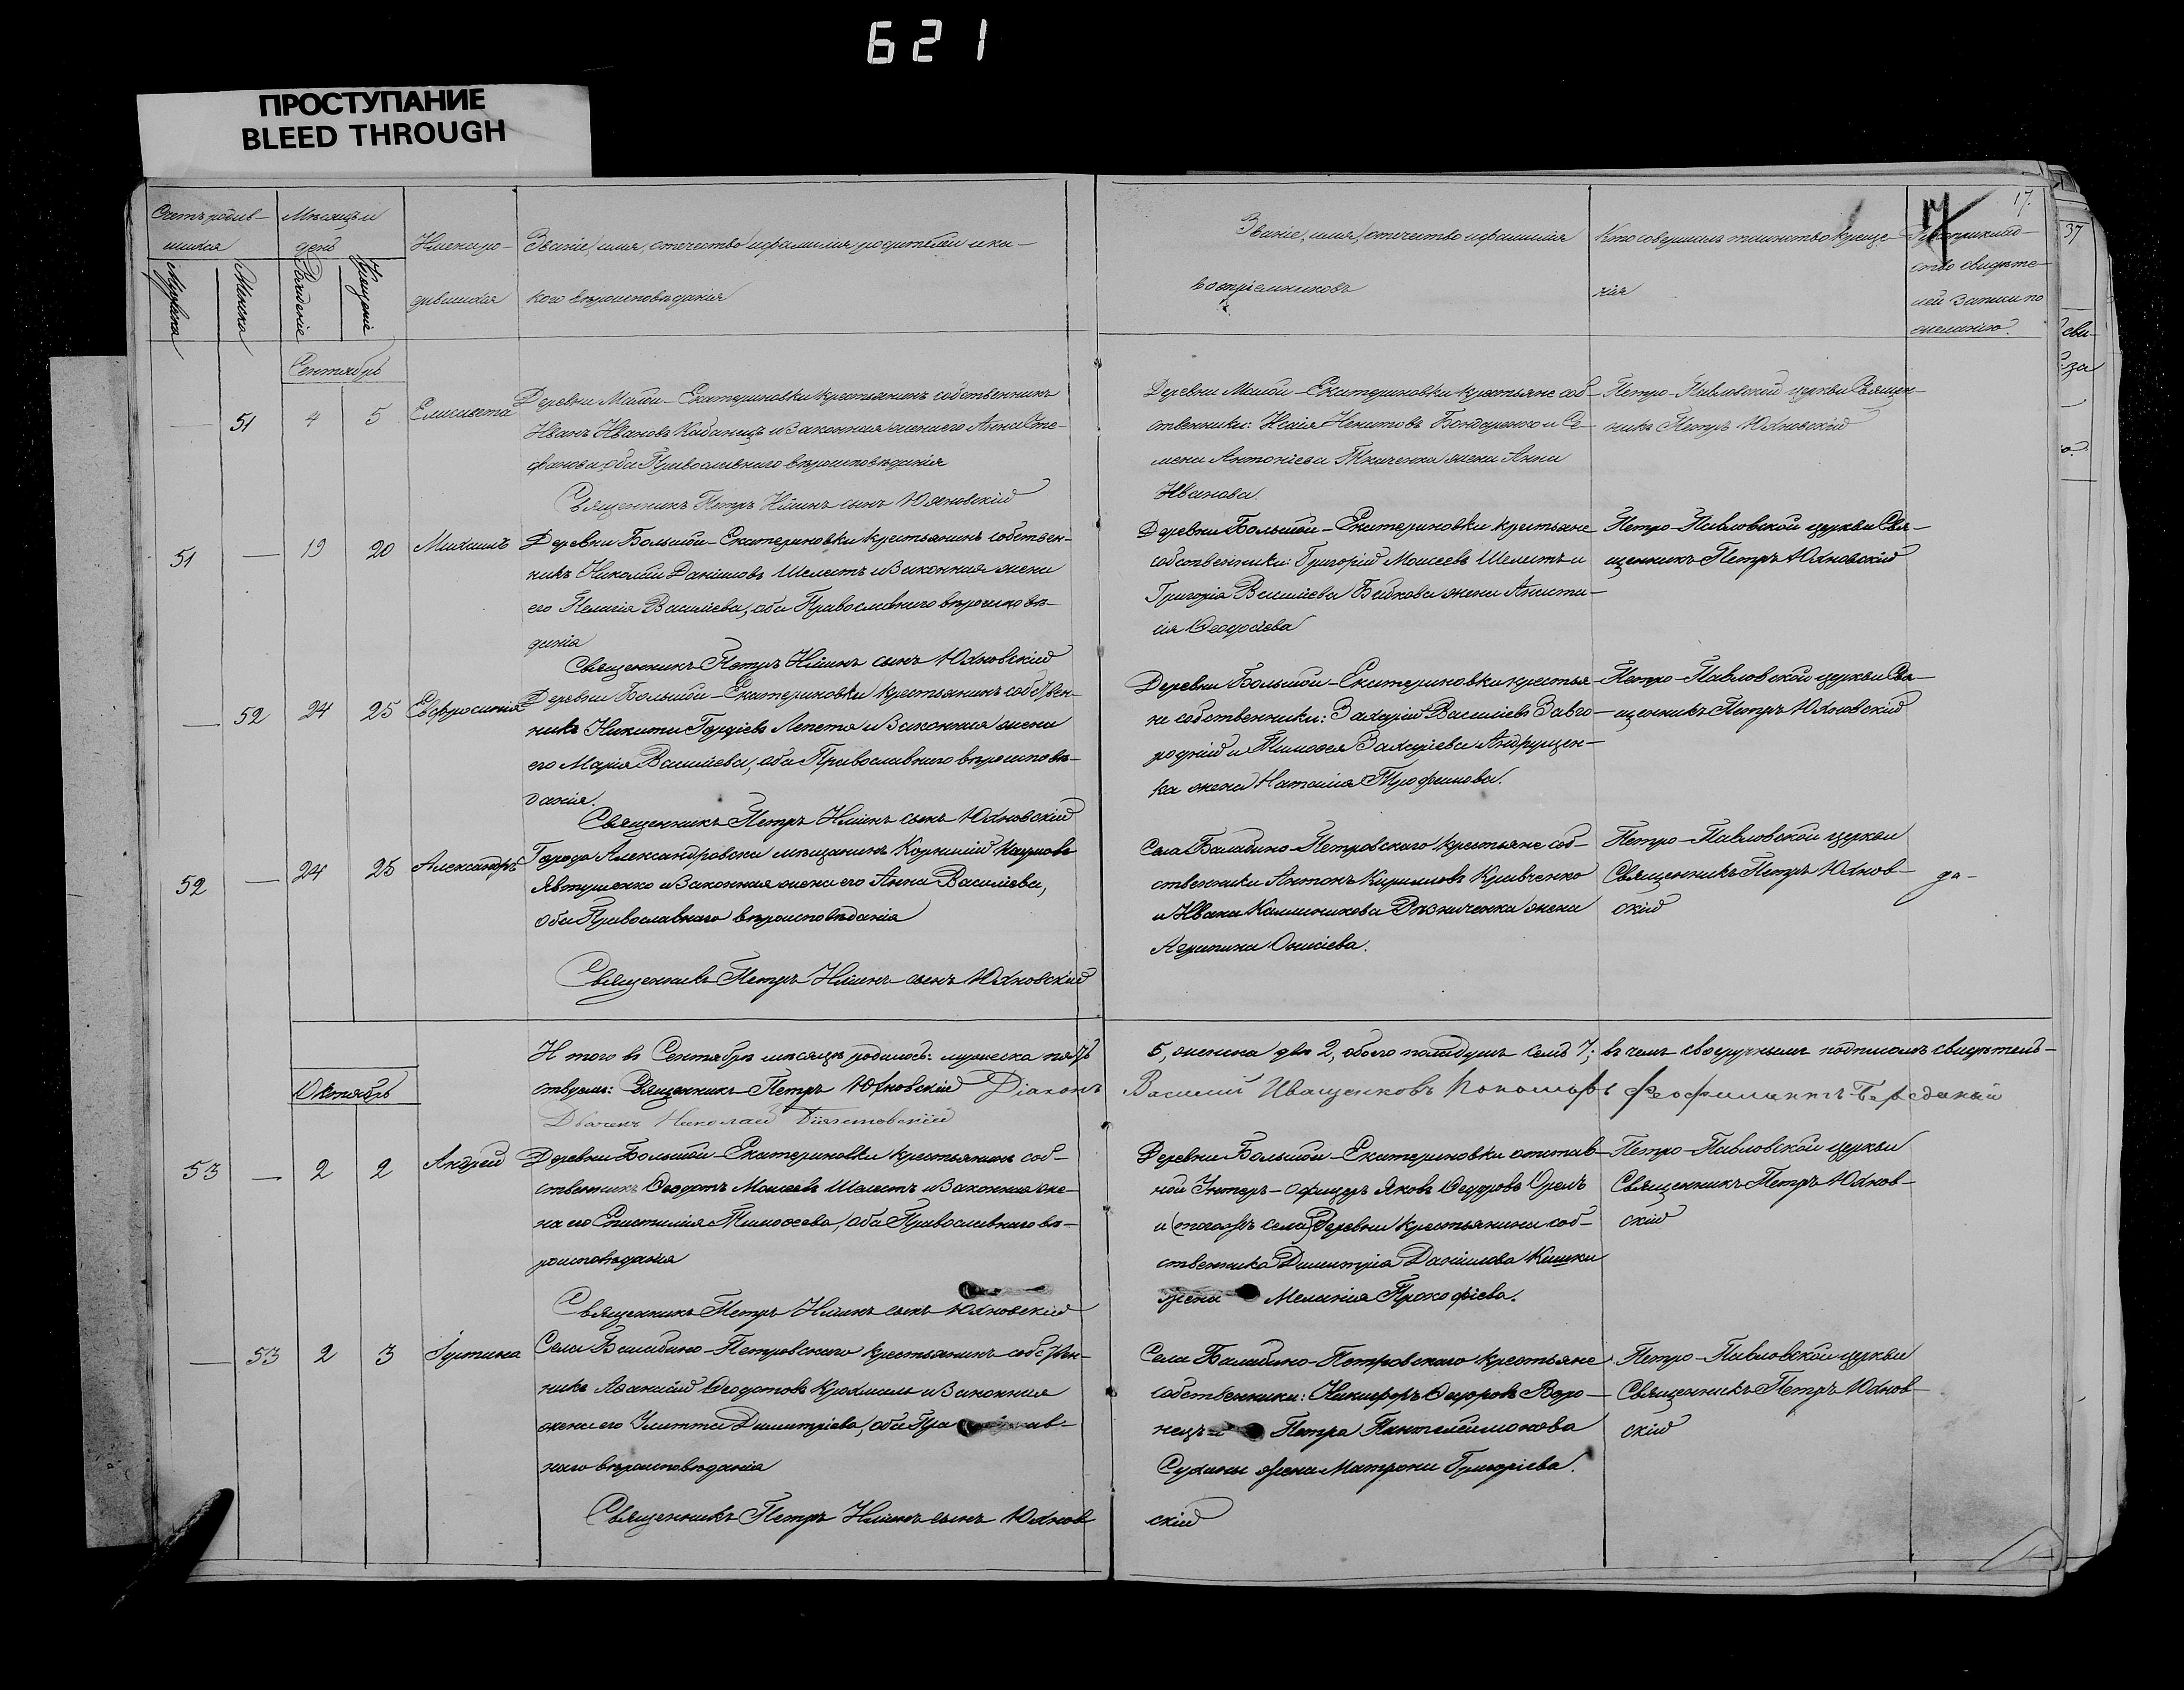 621
ПРОСТУПАНИЕ
BLEED THROUGH
17.
Счетъ родив-
шихся
Мужеска
Женска
Мѣсяцъ и
день
Рожденіе
Крещеніе
Имена ро-
дившихся
Званіе, имя, отечество и фамилія родителей и ка-
кого вѣроисповѣданія
Званіе, имя, отечество и фамилія
воспріемниковъ
Кто совершилъ таинство креще-
нія
Рукоприклад-
ство свидѣте-
лей записи по
желанію.
Сентябрь
51
4
5
Елисавета
Деревни Малой-Екатериновки крестьянинъ собственникъ
Иванъ Ивановъ Кабанецъ и законная жена его Анна Сте-
фанова, оба Православнаго вѣроисповѣданія
Священникъ Петръ Іоаннъ сынъ Юхновскій
Деревни Малой-Екатериновки крестьяне соб-
ственники: Исаія Некитовъ Бондаренко и Се-
мена Антоніева Ткаченка жена Анна
Иванова.
Петро-Павловской церкви Священ-
никъ Петръ Юхновскій
51
19
20
Михаилъ
Деревни Большой-Екатериновки крестьянинъ собствен-
никъ Николай Даніиловъ Шелестъ и законная жена
его Пелагія Васильева, оба Православнаго вѣроисповѣ-
данія
Священникъ Петръ Іоаннъ сынъ Юхновскій
Деревни Большой-Екатериновки крестьяне
собственники: Григорій Моисеевъ Шелестъ и
Григорія Васильева Бабкова жена Анаста-
сія Ѳеодосіева
Петро-Павловской церкви Свя-
щенникъ Петръ Юхновскій
52
24
25
Евфросинія
Деревни Большой-Екатериновки крестьянинъ собствен-
никъ Никита Гордіевъ Лепета и законная жена
его Марія Васильева, оба Православнаго вѣроисповѣ-
данія.
Священникъ Петръ Іоаннъ сынъ Юхновскій
Деревни Большой-Екатериновки крестья-
не собственники: Захарій Василіевъ Завго-
родній и Тимоѳея Захаріева Андрущен-
ка жена Наталія Трофимова.
Петро-Павловской церкви Свя-
щенникъ Петръ Юхновскій
52
24
25
Александръ
Города Александровска мѣщанинъ Корнилій Карповъ
Явтушенко и законная жена его Анна Василіева,
оба Православнаго вѣроисповѣданія
Священникъ Петръ Іоаннъ сынъ Юхновскій
Села Балабино-Петровскаго крестьяне соб-
ственники Антонъ Кирилловъ Кривченко
и Ивана Калиникова жена
Агрипина Онисіева.
Петро-Павловской церкви
Священникъ Петръ Юхнов-
скій
Итого въ Сентябрѣ мѣсяцѣ родилось: мужеска пять
5, женска два 2, обоего пола душъ семь 7; въ чемъ своеручнымъ подписомъ свидѣтель-
ствуемъ: Священникъ Петръ Юхновскій Діаконъ
Василій Иващенковъ Пономарь
Дьячекъ Николай
Октябрь
53
2
2
Андрей
Деревни Большой-Екатериновки крестьянинъ соб-
ственникъ Ѳеодотъ Моисеевъ Шелестъ и законная же-
на его Епистимія Тимоѳеева, оба Православнаго вѣ-
роисповѣданія
Священникъ Петръ Іоаннъ сынъ Юхновскій
Деревни Большой-Екатериновки отстав-
ной Унтеръ-Офицеръ Яковъ Ѳедоровъ Орелъ
и (тогожъ села) деревни крестьянина соб-
ственника Димитрія Даніилова Кишки
жена Меланія Прокофіева.
Петро-Павловской церкви
Священникъ Петръ Юхнов-
скій
53
2
3
Іустина
Села Балабино-Петровскаго крестьянинъ собствен-
никъ Аѳанасій Ѳеодотовъ Крахмаль и законная
жена его Улита Димитріева, оба Православ-
наго вѣроисповѣданія
Священникъ Петръ Іоаннъ сынъ Юхнов-
скій
Села Балабино-Петровскаго крестьяне
собственники: Никифоръ Ѳеодоровъ Воро-
нецъ и Петра Пантелеимонова
Сухины жена Матрона Григоріева.
Петро-Павловской церкви
Священникъ Петръ Юхнов-
скій
37